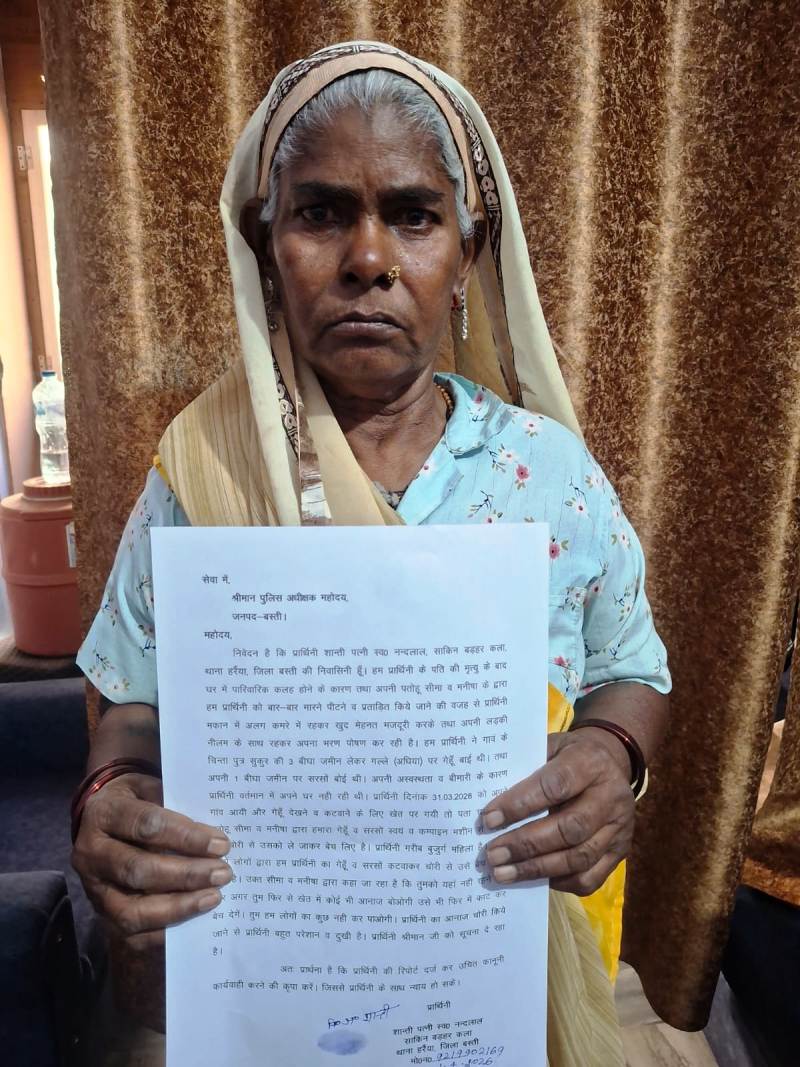 सेवा में,
श्रीमान पुलिस अधीक्षक महोदय,
जनपद–बस्ती।
महोदय,
निवेदन है कि प्रार्थिनी शान्ती पत्नी स्व0 नन्दलाल, साकिन बड़हर कला,
थाना हर्रैया, जिला बस्ती की निवासिनी हूँ। हम प्रार्थिनी के पति की मृत्यु के बाद
घर में पारिवारिक कलह होने के कारण तथा अपनी पतोहू सीमा व मनीषा के द्वारा
हम प्रार्थिनी को बार–बार मारने पीटने व प्रताडित किये जाने की वजह से प्रार्थिनी
मकान में अलग कमरे में रहकर खुद मेहनत मजदूरी करके तथा अपनी लड़की
नीलम के साथ रहकर अपना भरण पोषण कर रही है। हम प्रार्थिनी ने गांव के
चिन्ता पुत्र सुकुर की 3 बीघा जमीन लेकर गल्ले (अधिया) पर गेहूँ बाई थी। तथा
अपनी 1 बीघा जमीन पर सरसों बोई थी। अपनी अस्वस्थता व बीमारी के कारण
प्रार्थिनी वर्तमान में अपने घर नही रही थी। प्रार्थिनी दिनांक 31.03.2026 को अपने
गांव आयी और गेहूँ देखने व कटवाने के लिए खेत पर गयी तो पता
सीमा व मनीषा द्वारा हमारा गेहूँ व सरसों स्वयं व कम्पाइन मशीन
चोरी से उसको ले जाकर बेच लिए है। प्रार्थिनी गरीब बुजुर्ग महिला है।
लोगों द्वारा हम प्रार्थिनी का गेहूँ व सरसों कटवाकर चोरी से उसे
है। उक्त सीमा व मनीषा द्वारा कहा जा रहा है कि तुमको यहां नहीं
अगर तुम फिर से खेत में कोई भी आनाज बोओगी उसे भी फिर में काट कर
बेच देगें। तुम हम लोगों का कुछ नही कर पाओगी। प्रार्थिनी का आनाज चोरी किये
जाने से प्रार्थिनी बहुत परेशान व दुखी है। प्रार्थिनी श्रीमान जी को सूचना दे रहा
है।
अतः प्रार्थना है कि प्रार्थिनी की रिपोर्ट दर्ज कर उचित कानूनी
कार्यवाही करने की कृपा करें। जिससे प्रार्थिनी के साथ न्याय हो सके।
प्रार्थिनी
शान्ती
शान्ती पत्नी स्व0 नन्दलाल
साकिन बड़हर कला
थाना हर्रैया, जिला बस्ती
मो0न0 9219902169
4.2026